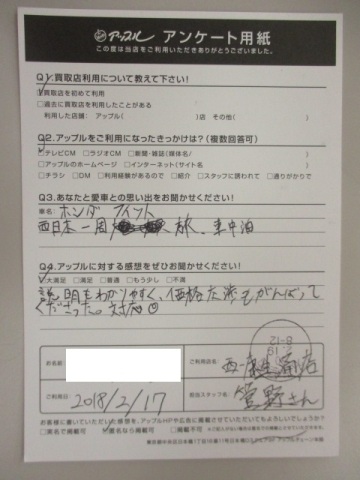 アップル アンケート用紙
この度は当店をご利用いただきありがとうございました。
Q1.買取店利用について教えて下さい!
☑買取店を初めて利用
□過去に買取店を利用したことがある
利用した店舗: アップル( )店 その他( )
Q2.アップルをご利用になったきっかけは?(複数回答可)
☑テレビCM □ラジオCM □新聞・雑誌(媒体名/ )
□アップルのホームページ □インターネット(サイト名 )
□チラシ □DM □利用経験があるので □紹介 □スタッフに誘われて □通りがかりで
Q3.あなたと愛車との思い出をお聞かせください!
車名: ホンダ フィット
西日本一周 旅、車中泊
Q4.アップルに対する感想をぜひお聞かせください!
☑大満足 □満足 □普通 □もう少し □不満
説明もわかりやすく、価格交渉もがんばって
くださった。対応◎
お名前
ご利用店名: 西 店
ご利用日 2018/2/17
担当スタッフ名: 菅野さん
お客様に書いていただいた感想を、アップルHPや広告に掲載させていただいてもよろしいでしょうか?
□実名で掲載可 ☑匿名なら掲載可 □掲載不可